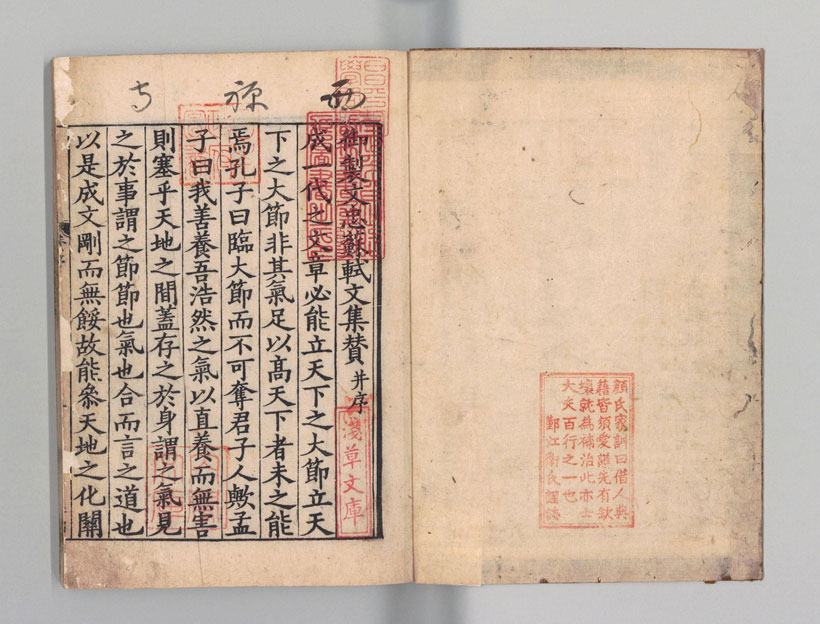 顔氏家訓曰借人典
籍皆須愛護先有缺
壞就為補治此亦士
大夫百行之一也
鄞江衛氏謹誌
西 寺
御製文忠蘇軾文集賛并序
淺草文庫
成一代之文章必能立天下之大節立天
下之大節非其氣足以髙天下者未之能
焉孔子曰臨大節而不可奪君子人歟孟
子曰我善養吾浩然之氣以直養而無害
則塞乎天地之間蓋存之於身謂之氣見
之於事謂之節節也氣也合而言之道也
以是成文剛而無餒故能叅天地之化關